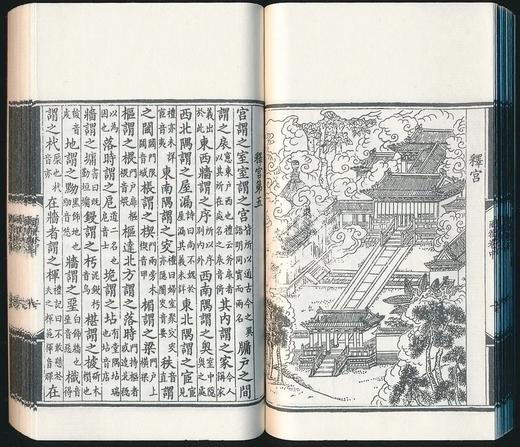 釋宮
釋宮第五
宮謂之室室謂之宮皆所以通古今之異語明同實而兩名牖戶之間
謂之扆窻東戶西也禮云斧扆者以其所在處名之扆音其内謂之家今人稱家
義出於此東西牆謂之序所以序別内外西南隅謂之奧室中隱奧之處
西北隅謂之屋漏詩曰尚不媿于屋漏其義未詳東北隅謂之宧宧見
禮亦未詳宧音夷東南隅謂之窔禮曰歸室聚窔窔亦隱闇窔音要柣謂
之閾閾門限柣音秩閾音域棖謂之楔門兩旁木楔音楣謂之梁門戶上橫梁
樞謂之椳門戶扉樞椳音樞達北方謂之落時門持樞者或達北
以為固也落時謂之戹道二名也戹音士垝謂之坫在堂隅坫端也坫音店
牆謂之墉書曰既勤垣墉鏝謂之杇泥鏝杇音烏椹謂之榩斫木櫍也
榩音虔地謂之黝黑飾地也黝音牆謂之堊白飾牆也堊音惡樴
謂之杙橜也杙音亦在牆者謂之楎禮記曰不敢縣於夫之楎椸楎音輝在